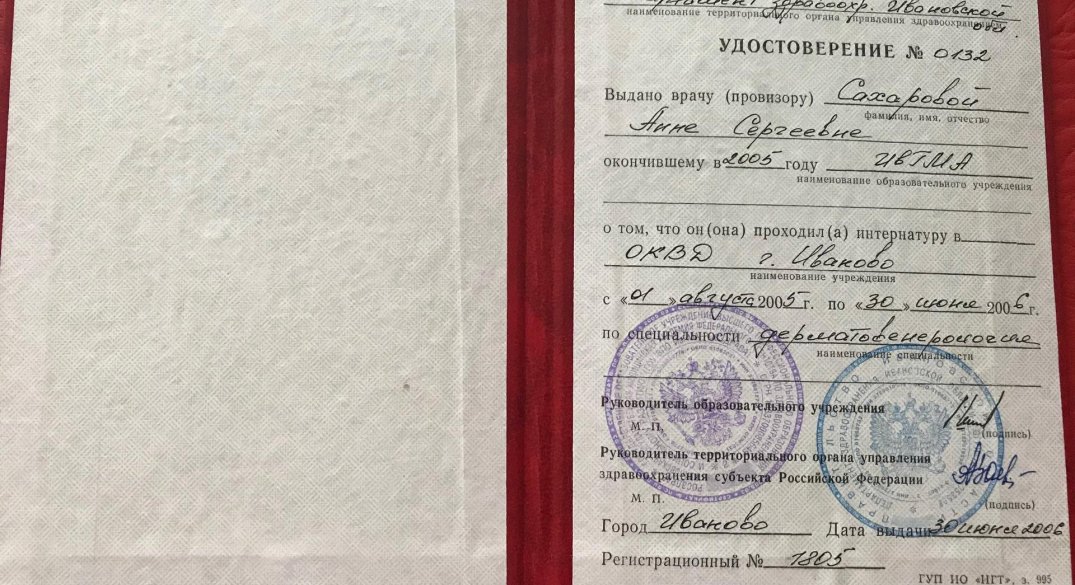 здравоохр. Ивановской
наименование территориального органа управления здравоохранением
обл.
УДОСТОВЕРЕНИЕ № 0132
Выдано врачу (провизору) Сахаровой
фамилия, имя, отчество
Анне Сергеевне
окончившему в 2005 году ИвГМА
наименование образовательного учреждения
о том, что он(она) проходил(а) интернатуру в
ОКВД г. Иваново
наименование учреждения
с «01» августа 2005 г. по «30» июня 2006 г.
по специальности дерматовенерология
наименование специальности
Руководитель образовательного учреждения
М. П.
(подпись)
Руководитель территориального органа управления
здравоохранения субъекта Российской Федерации
М. П.
(подпись)
Город Иваново Дата выдачи 30 июня 2006
Регистрационный № 1805
ГУП ИО «ИГТ», з. 995